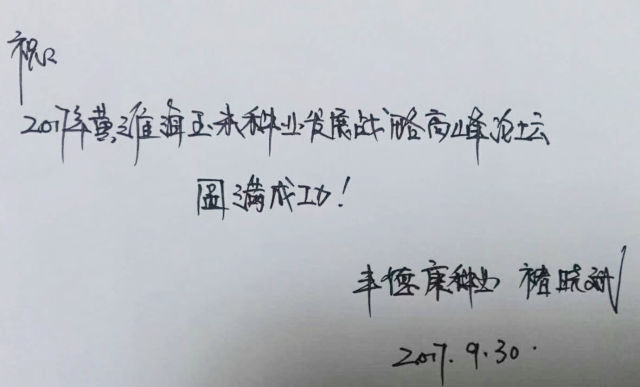 祝
2017年黄淮海玉米种业发展战略高峰论坛
圆满成功!
丰德康种业 褚晓斌
2017.9.30.